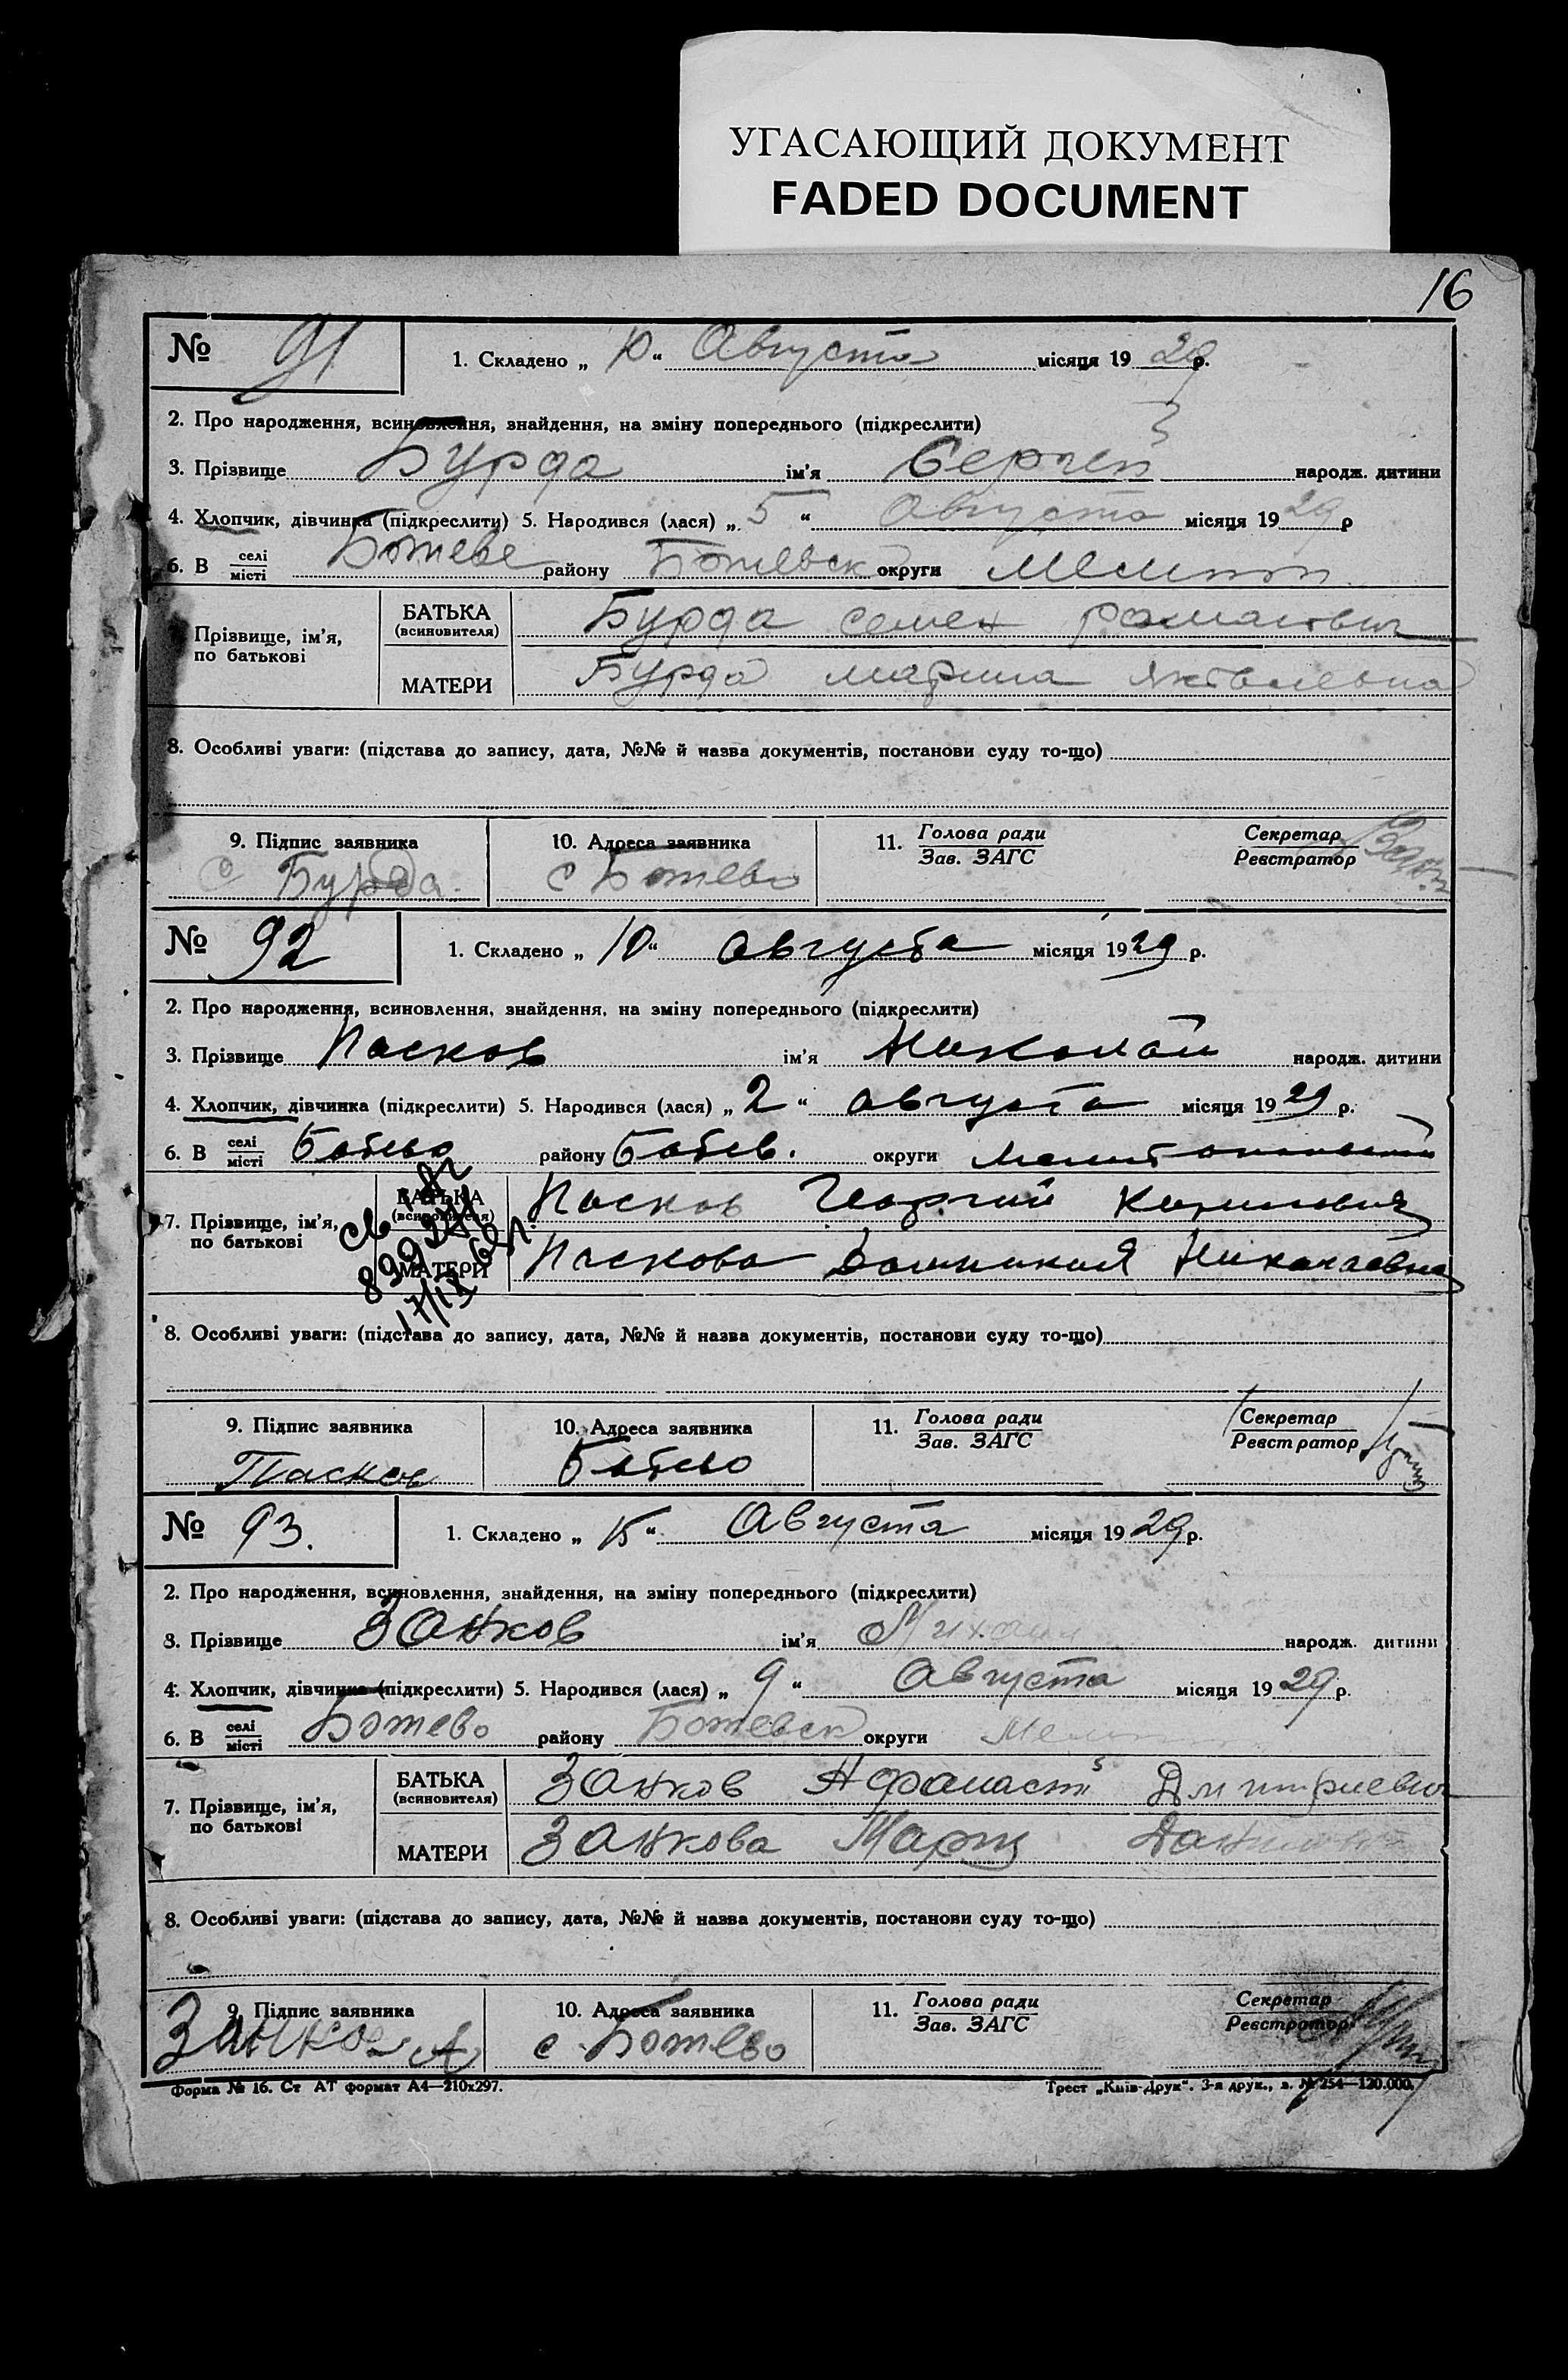 УГАСАЮЩИЙ ДОКУМЕНТ
FADED DOCUMENT
16
№ 91 1. Складено „ 10 “ Августа місяця 19 29 р.
2. Про народження, всиновлення, знайдення, на зміну попереднього (підкреслити)
3. Прізвище Бурда ім'я Сергей народж. дитини
4. Хлопчик, дівчинка (підкреслити) 5. Народився (лася) „ 5 “ Августа місяця 19 29 р
6. В селі/місті Ботеве району Ботевск округи Мелитоп
Прізвище, ім'я, по батькові
БАТЬКА (всиновителя) Бурда Семен Романович
МАТЕРИ Бурда марина Яковлевна
8. Особливі уваги: (підстава до запису, дата, №№ й назва документів, постанови суду то-що)
9. Підпис заявника 10. Адреса заявника 11. Голова ради/Зав. ЗАГС Секретар/Реєстратор
С Бурда. с Ботево
№ 92 1. Складено „ 10 “ августа місяця 19 29 р.
2. Про народження, всиновлення, знайдення, на зміну попереднього (підкреслити)
3. Прізвище Пасков ім'я Николай народж. дитини
4. Хлопчик, дівчинка (підкреслити) 5. Народився (лася) „ 2 “ августа місяця 19 29 р.
6. В селі/місті Ботево району Ботев. округи
7. Прізвище, ім'я, по батькові
БАТЬКА (всиновителя) Пасков Георгий
МАТЕРИ Паскова Николаевна
8. Особливі уваги: (підстава до запису, дата, №№ й назва документів, постанови суду то-що)
9. Підпис заявника 10. Адреса заявника 11. Голова ради/Зав. ЗАГС Секретар/Реєстратор
Пасков Ботево
№ 93. 1. Складено „ 15 “ Августа місяця 19 29 р.
2. Про народження, всиновлення, знайдення, на зміну попереднього (підкреслити)
3. Прізвище Занков ім'я Михаил народж. дитини
4. Хлопчик, дівчинка (підкреслити) 5. Народився (лася) „ 9 “ Августа місяця 19 29 р.
6. В селі/місті Ботево району Ботевск округи
7. Прізвище, ім'я, по батькові
БАТЬКА (всиновителя) Занков Афанасий Дмитриевич
МАТЕРИ Занкова Мария
8. Особливі уваги: (підстава до запису, дата, №№ й назва документів, постанови суду то-що)
9. Підпис заявника 10. Адреса заявника 11. Голова ради/Зав. ЗАГС Секретар/Реєстратор
Занков А с. Ботево
Форма № 16. Ст АТ формат А4—210х297. Трест „Київ-Друк“. 3-я друк., з. № 254—120.000.